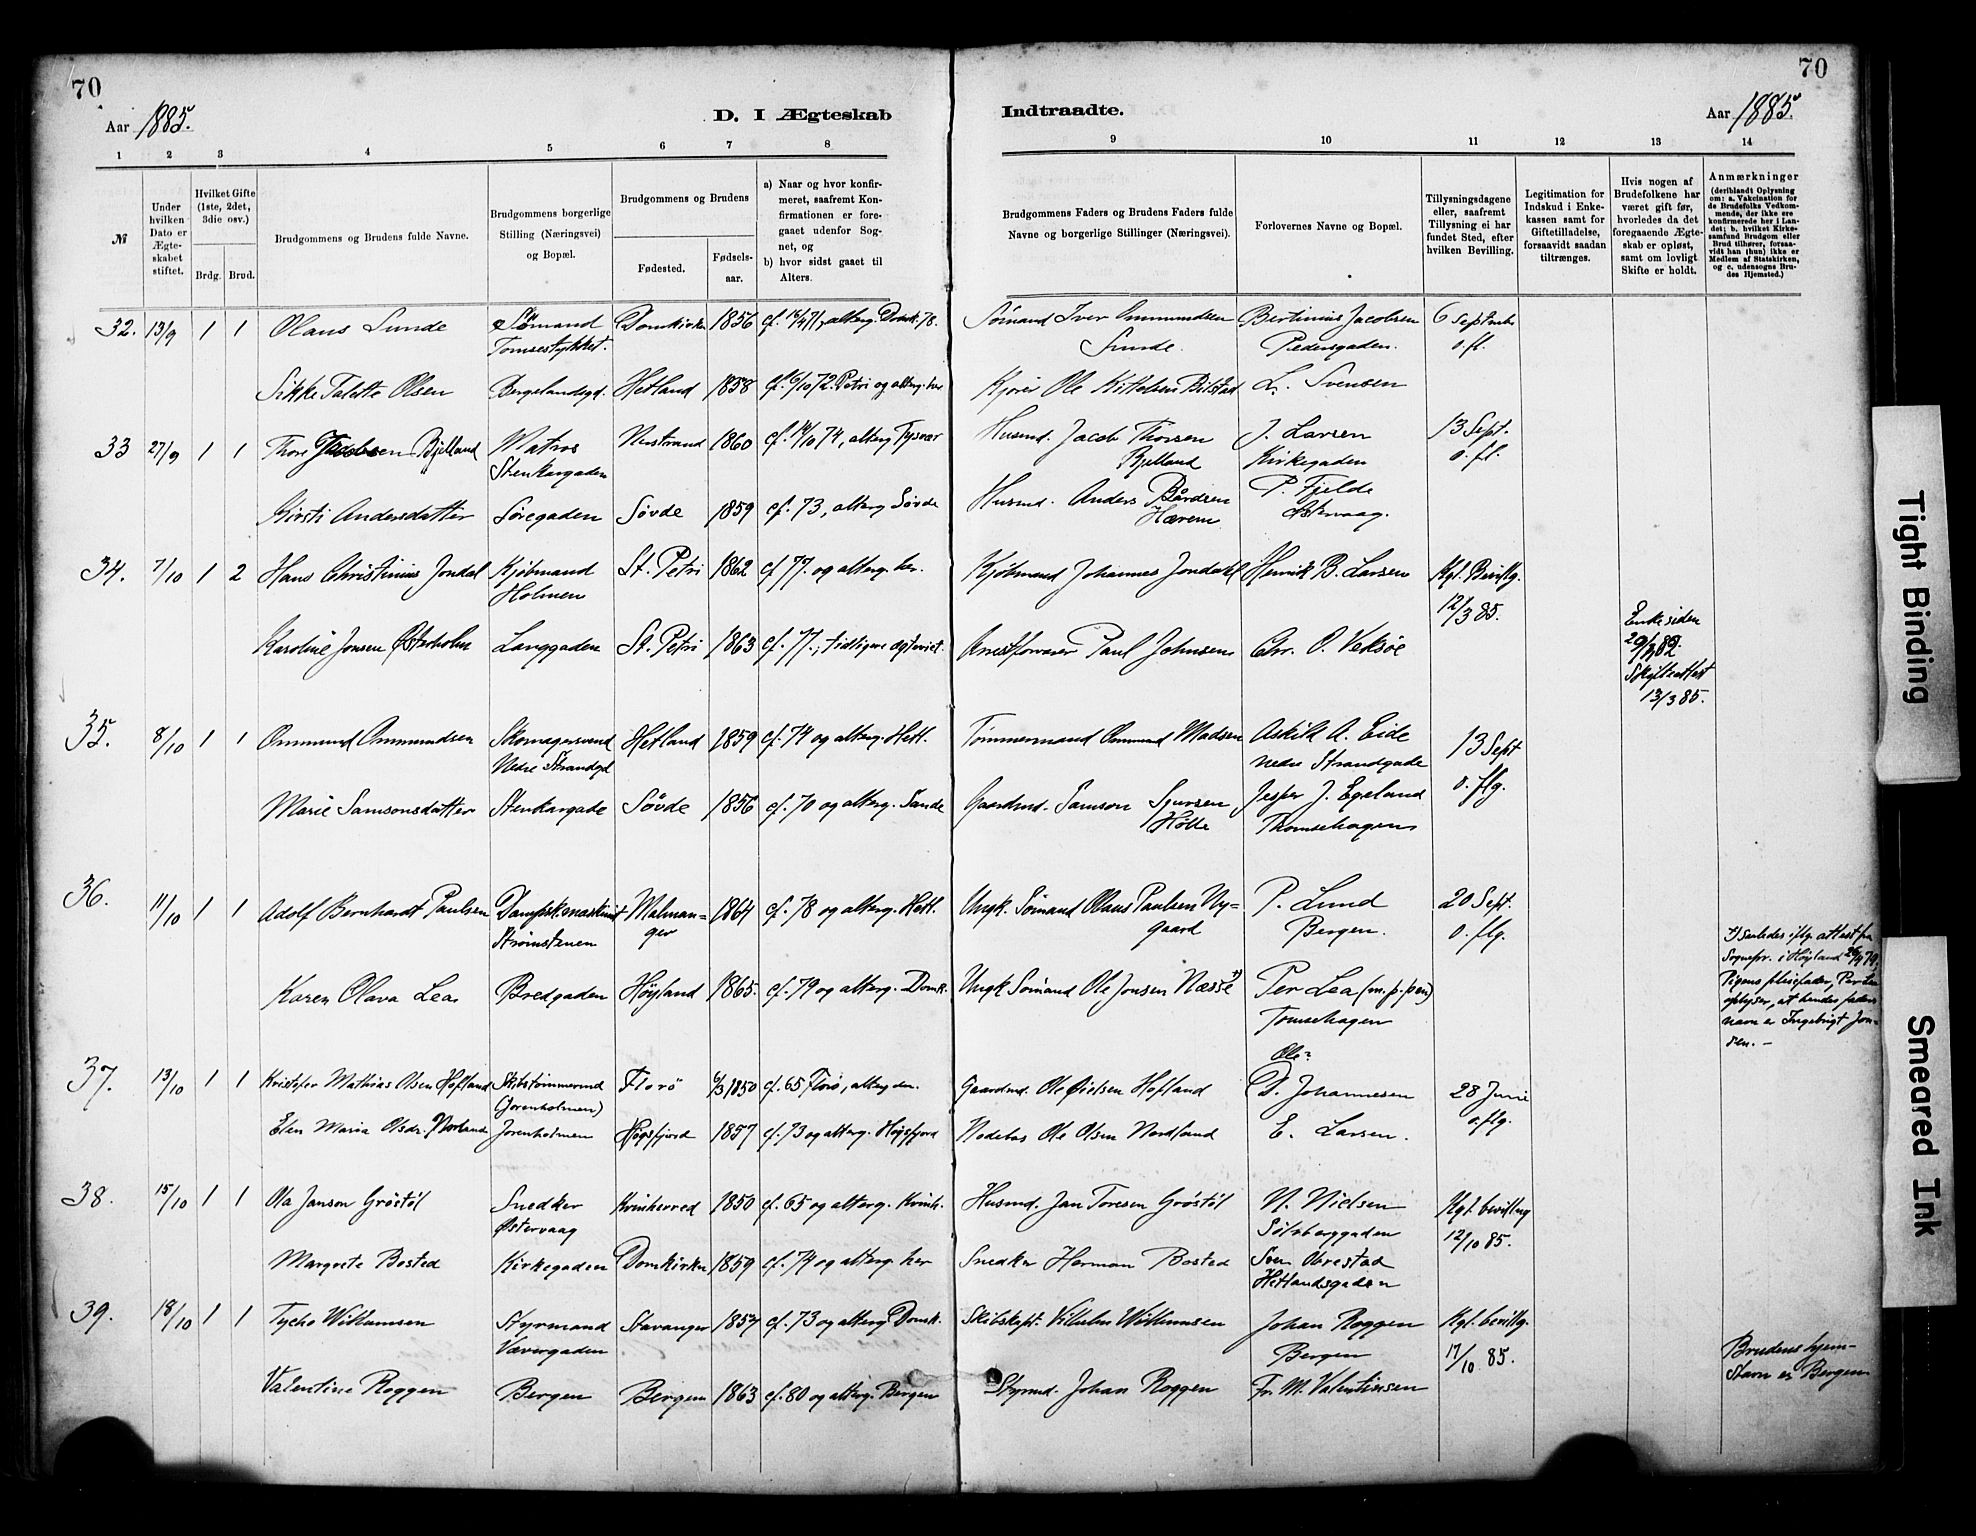 70
70
Aar 1885.
D. I Ægteskab
Indtraadte.
Aar 1885.
1 2 3 4 5 6 7 8 9 10 11 12 13 14
№
Under hvilken Dato er Ægteskabet stiftet.
Hvilket Gifte (1ste, 2det, 3die osv.)
Brdg. Brud.
Brudgommens og Brudens fulde Navne.
Brudgommens borgerlige Stilling (Næringsvei) og Bopæl.
Brudgommens og Brudens
Fødested.
Fødselsaar.
a) Naar og hvor konfirmeret, saafremt Konfirmationen er foregaaet udenfor Sognet, og
b) hvor sidst gaaet til Alters.
Brudgommens Faders og Brudens Faders fulde Navne og borgerlige Stillinger (Næringsvei).
Forlovernes Navne og Bopæl.
Tillysningsdagene eller, saafremt Tillysning ei har fundet Sted, efter hvilken Bevilling.
Legitimation for Indskud i Enkekassen samt for Giftetilladelse, forsaavidt saadan tiltrænges.
Hvis nogen af Brudefolkene har været gift før, hvorledes da det foregaaende Ægteskab er opløst, samt om lovligt Skifte er holdt.
Anmærkninger
(deriblandt Oplysning om: a. Vakcination for de Brudefolks Vedkommende, der ikke ere konfirmerede her i Landet; b. hvilket Kirkesamfund Brudgom eller Brud tilhører, forsaavidt han (hun) ikke er Medlem af Statskirken, og c. udensogns Brudes Hjemsted.)
32. 13/9 1 1 Olaus Sunde Sömand Domkirken 1856 cf. 16/4 71, alterg. Domk. 78. Sömand Iver Ommundsen Bertinius Jacobsen 6 September
Tomsestykket. Sunde. Pedersgaden. o. fl.
Sikke Talette Olsen Bergelandsgd. Hetland 1858 cf. 6/10 72. Petri og alterg. her Ole Kittelsen Bilstad L. Svensen
33 27/9 1 1 Thore Jacobsen Bjelland Matros Nerstrand 1860 cf. 14/10 74, alterg. Tysvær Husmd. Jacob Thorsen J. Larsen 13 Sept.
Stenkargaden Bjelland Kirkegaden o. fl.
Kirsti Andersdatter Söregaden Sövde 1859 cf. 73, alterg. Sövde Husmd. Anders Bårdsen P. Fjelde
Hærem Østervaag.
34. 7/10 1 2 Hans Christinius Jondal Kjöbmand St. Petri 1862 cf 77. og alterg. her. Kjöbmand Johannes Jondahl Henrik B. Larsen Kgl. Bevillg.
Holmen 12/3 85.
Enke siden
Karoline Jonsen Østerholm Langgaden St. Petri 1863 cf. 77., Paul Johnsen Chr. O. Veksöe 29/3 82.
Skifteattest
13/3 85.
35. 8/10 1 1 Ommund Ommundsen Skomagersvend Hetland 1859 cf. 74 og alterg. Hetl. Tömmermand Ommund Madsen Askild A. Eide 13 Sept
Nedre Strandgd Nedre Strandgade o. flg.
Marie Samsonsdatter Stenkargade Sövde 1856 cf. 70 og alterg. Sande Gaardmd. Samson Sjursen Jesper J. Egeland
Hølle Thomsehagen
36. 11/10 1 1 Adolf Bernhardt Paulsen Dampsk.maskinist Malmanger 1864 cf. 78 og alterg. Hetl. Ungk. Sömand Olaus Paulsen Nygaard P. Lund 20 Sept.
Strömstenen Bergen. o. flg.
Karen Olava Lea Bredgaden Höyland 1865. cf. 79 og alterg. Domk. Ungk Sömand Ole Jonsen Næsse *) Per Lea (m. p. pen)
Tomsehagen
*) Saaledes iflg. attest fra
Sognepr. i Höyland
Pigens pleiefader, Per Lea
oplyser, at hendes faders
navn er Ingebrigt Jonsen. –
37. 13/10 1 1 Kristofer Mathias Olsen Hofland Skibstömmermd Florö 6/3 1850 cf. 65 Florö, alterg. den. Gaardmd. Ole Øielsen Hofland O. Johannesen 28 Juni
(Jorenholmen) o. flg.
Elen Maria Olsdr. Norland Jorenholmen Högsfjord 1857 cf. 73 og alterg. Högsfjord Ole Olsen Nordland E. Larsen.
38. 15/10 1 1 Ola Janson Gröstöl Snedker Kvinherred 1850 cf. 65 og alterg. Kvinh. Husmd. Jan Toresen Gröstöl N. Nielsen Kgl. bevillng
Østervaag Sölvberggaden 12/10 85.
Margrete Bosted Kirkegaden Domkirken 1859 cf. 74 og alterg. her Snedker Herman Bosted Sven Obrestad
Hetlandsgaden
39. 18/10 1 1 Tycho Wilhamsen Styrmand Stavanger 1857 cf. 73 og alterg. Domk. Skibskapt. Vilhelm Wilhamsen Johan Roggen Kgl. bevillg.
Vævergaden Bergen 17/10 85.
Valentine Roggen Bergen Bergen 1863 cf. 80 og alterg. Bergen Styrmd. Johan Roggen Fr. M. Valentinsen
Brudens hjemstavn er Bergen
Tight Binding
Smeared Ink